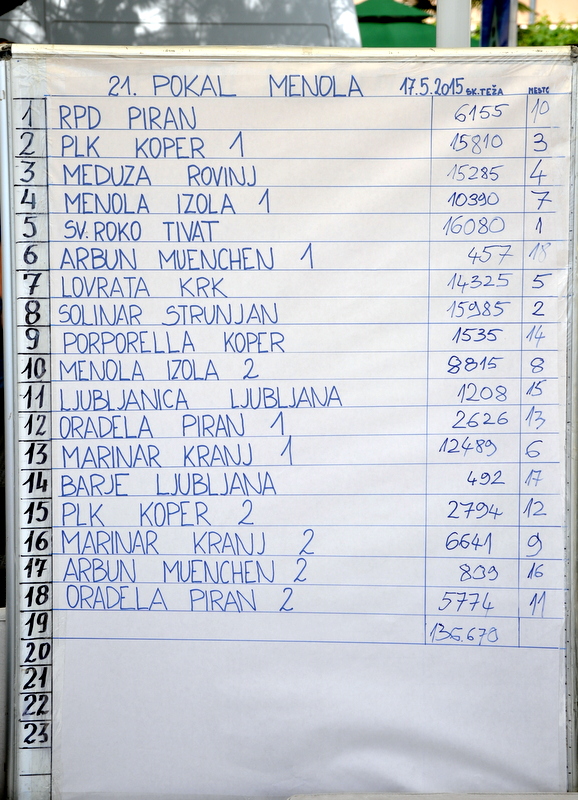 21. POKAL MENOLA 17.5.2015 SK.TEŽA MESTO
1 RPD PIRAN 6155 10
2 PLK KOPER 1 15810 3
3 MEDUZA ROVINJ 15285 4
4 MENOLA IZOLA 1 10390 7
5 SV. ROKO TIVAT 16080 1
6 ARBUN MUENCHEN 1 457 18
7 LOVRATA KRK 14325 5
8 SOLINAR STRUNJAN 15985 2
9 PORPORELLA KOPER 1535 14
10 MENOLA IZOLA 2 8815 8
11 LJUBLJANICA LJUBLJANA 1208 15
12 ORADELA PIRAN 1 2626 13
13 MARINAR KRANJ 1 12489 6
14 BARJE LJUBLJANA 492 17
15 PLK KOPER 2 2794 12
16 MARINAR KRANJ 2 6641 9
17 ARBUN MUENCHEN 2 839 16
18 ORADELA PIRAN 2 5774 11
19
20
21
22
23